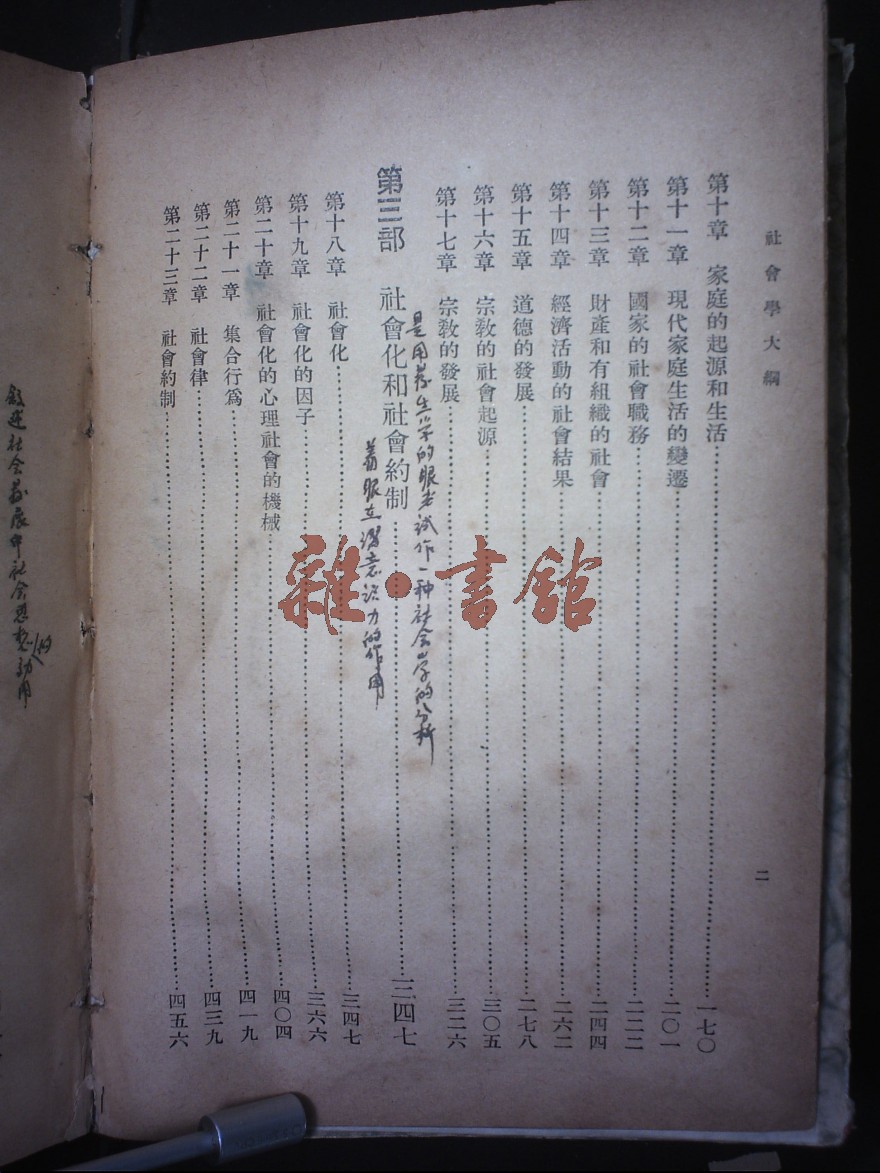 社會學大綱
二
第十章　家庭的起源和生活……一七〇
第十一章　現代家庭生活的變遷……二〇一
第十二章　國家的社會職務……二二二
第十三章　財產和有組織的社會……二四四
第十四章　經濟活動的社會結果……二六二
第十五章　道德的發展……二七八
第十六章　宗教的社會起源……三〇五
第十七章　宗教的發展……三二六
是用發生学的眼光試作一种社会学的分析
第三部　社會化和社會約制……三四七
着眼在潛意识力的作用
第十八章　社會化……三四七
第十九章　社會化的因子……三六六
第二十章　社會化的心理社會的機械……四〇四
第二十一章　集合行爲……四一九
第二十二章　社會律……四三九
第二十三章　社會約制……四五六
敍述社会發展中社会思想的功用
雜·書館